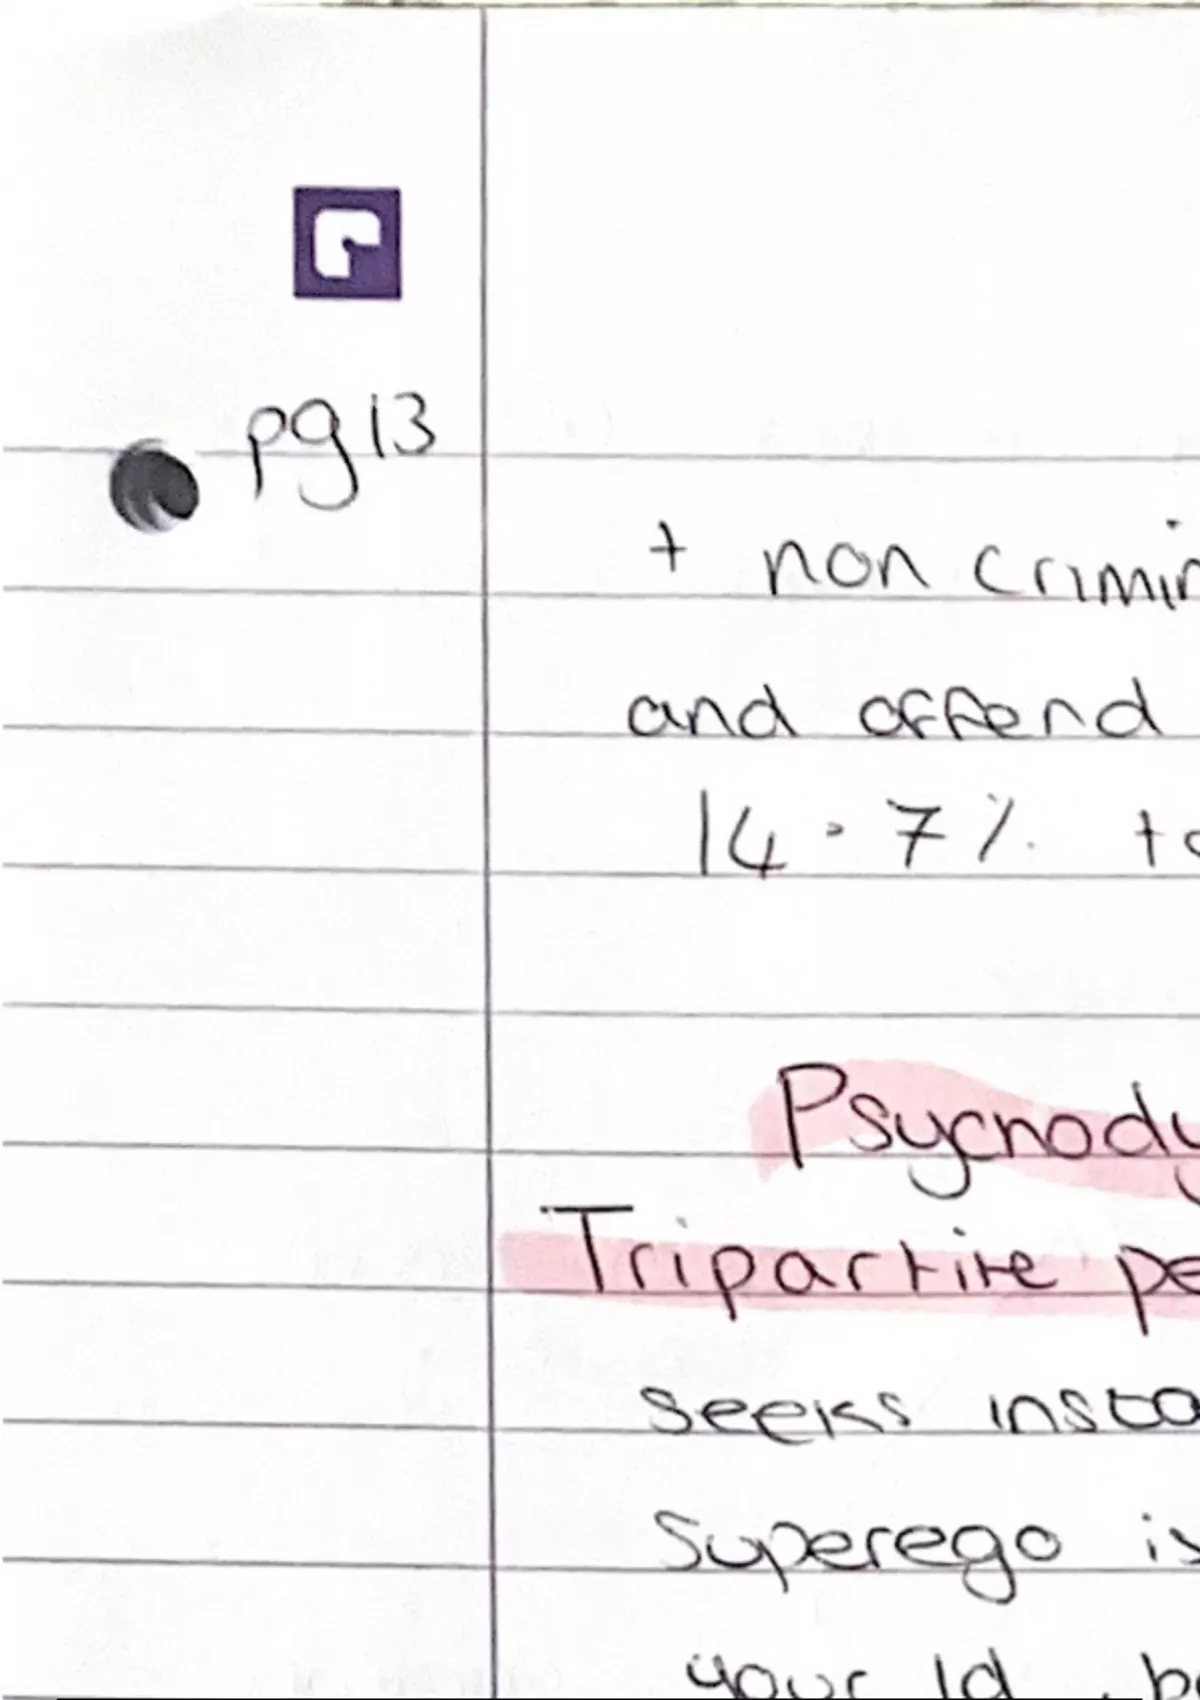 pg 13
+ non crimin
and offend
14.7% to
Psychody
Tripartite pe
seeks insta
Superego is
your Id, b